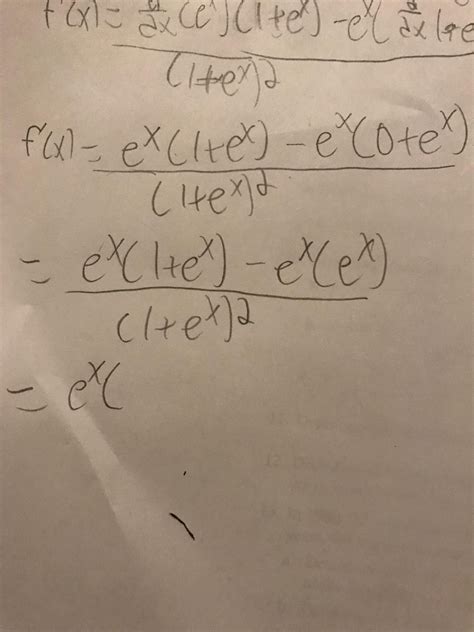 f'(x) = d/dx (e^x)(1+e^x) - e^x( d/dx 1+e
(1+e^x)2
f'(x) = e^x(1+e^x) - e^x(0+e^x)
(1+e^x)2
= e^x(1+e^x) - e^x(e^x)
(1+e^x)2
= e^x(